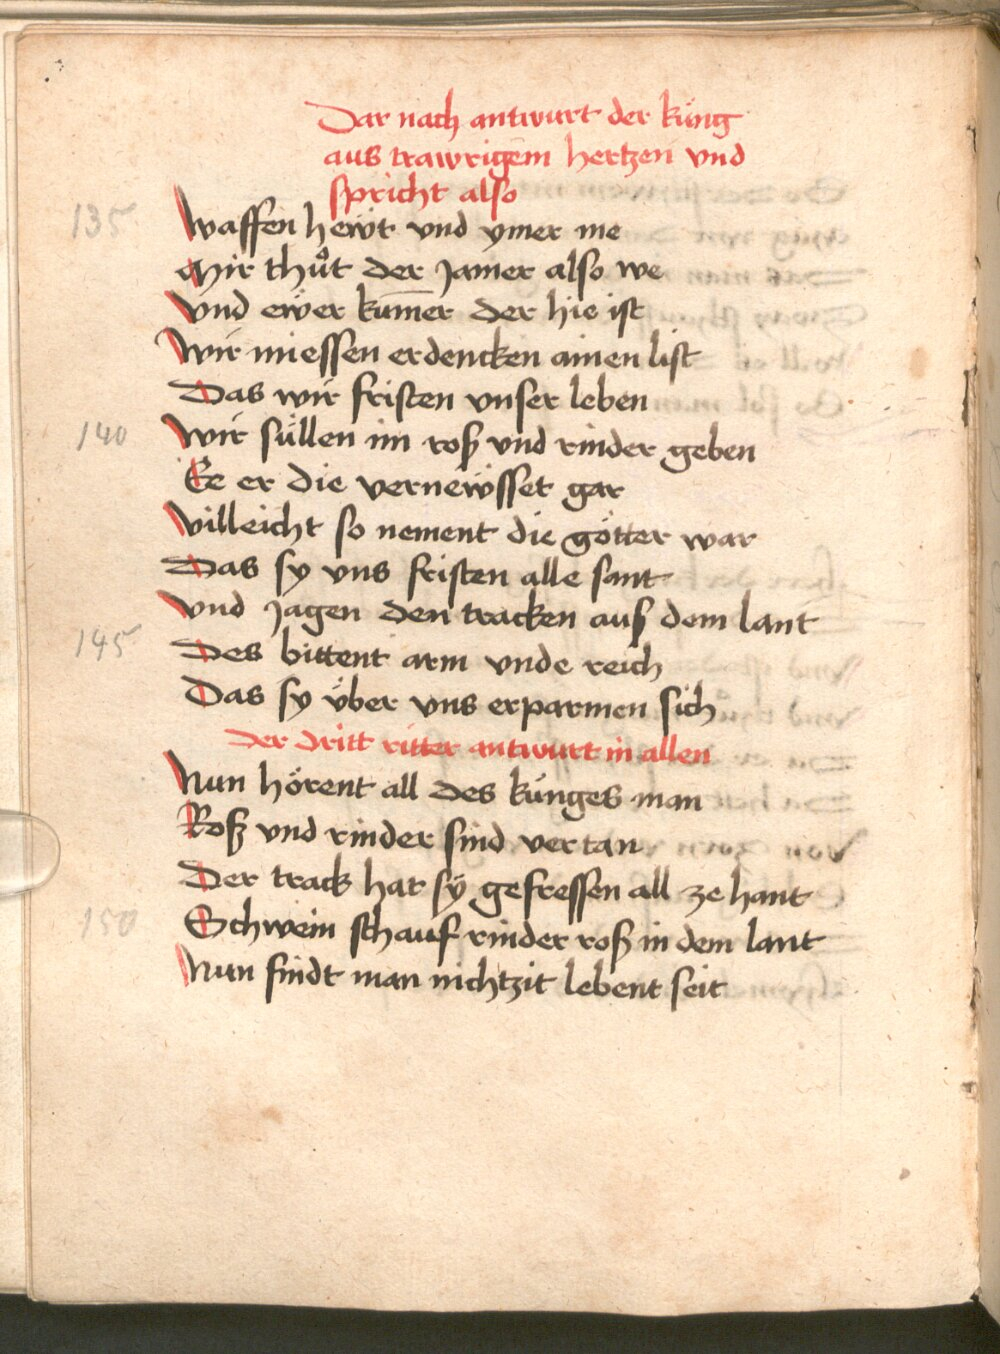 Dar nach antwurt der küng
aus trawrigem hertzen vnd
spricht also
135
Waffen hewt vnd ymer me
Mir thuͦt der Jamer also we
Vnd ewer kum̄er der hie ist
Wir miessen erdencken ainen list
Das wir fristen vnser leben
140
Wir süllen im roß vnd rinder geben
Ee er die vernewsset gar
Villeicht so nement die götter war
Das sy vns fristen alle sant
Vnd Jagen den tracken auß dem lant
145
Des bittent arm vnde reich
Das sy über vns erparmen sich
Der dritt ritter antwurt in allen
Nun hörent all des künges man
Roß vnd rinder sind vertan
Der track hat sÿ gefressen all ze hant
150
Schwein schauf rinder roß in dem lant
Nun findt man nichtzit lebent seit